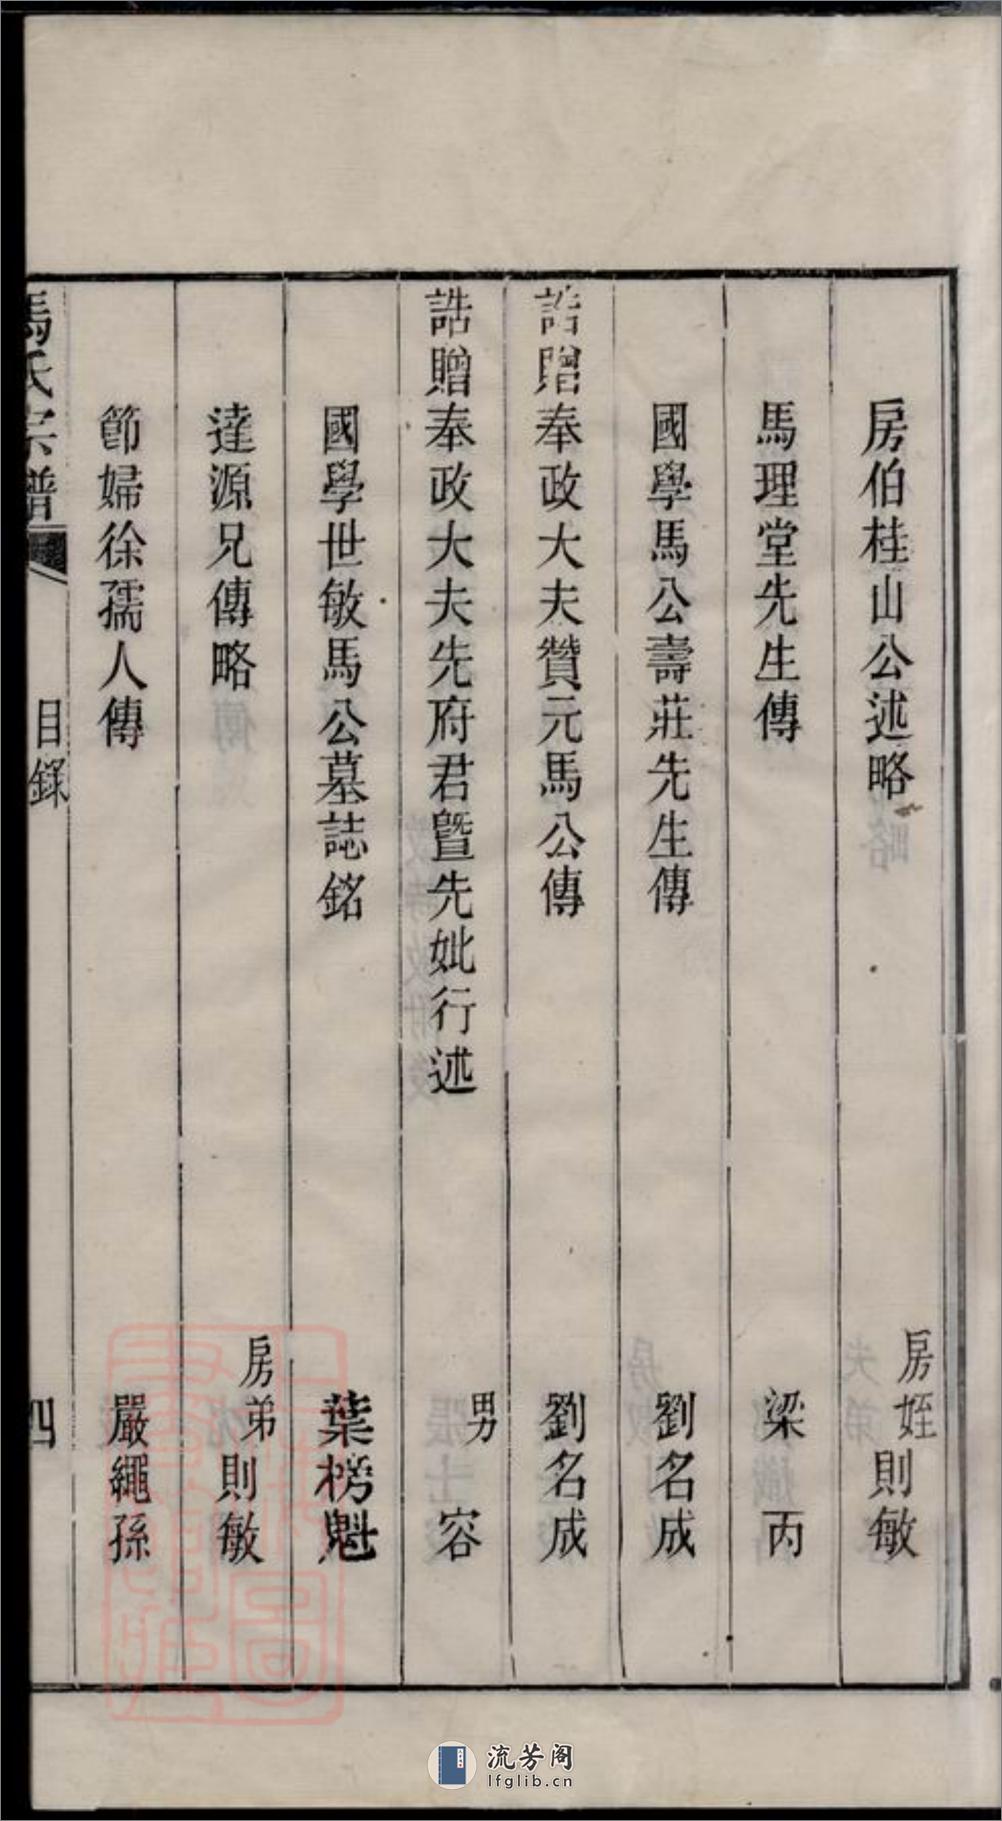 房伯桂山公述略 房姪則敏
馬理堂先生傳 梁丙
國學馬公壽莊先生傳 劉名成
誥贈奉政大夫贊元馬公傳 劉名成
誥贈奉政大夫先府君曁先妣行述 男容
國學世敏馬公墓誌銘 葉榜魁
達源兄傳略 房弟則敏
節婦徐孺人傳 嚴繩孫
馬氏宗譜 目錄 四
流芳阁
lfglib.cn